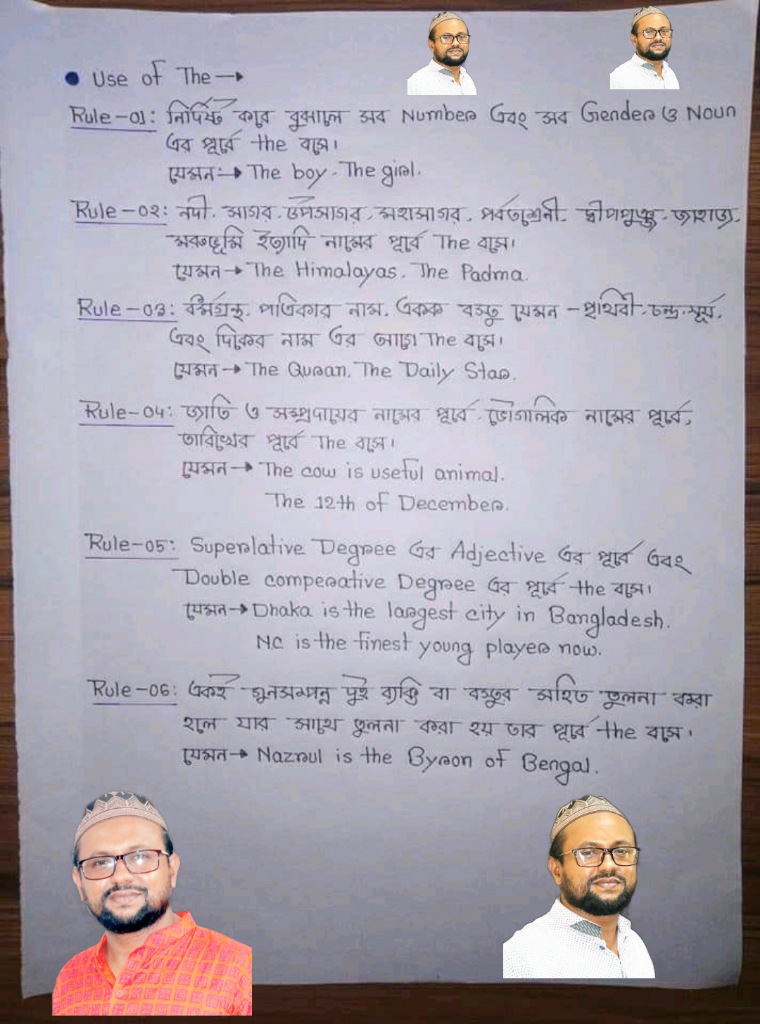 Use of The →
Rule-01: নির্দিষ্ট করে বুঝালে সব Number এবং সব Gender ও Noun
এর পূর্বে the বসে।
যেমন:→ The boy. The girl.
Rule-02: নদী. সাগর. উপসাগর. মহাসাগর. পর্বতশ্রেনী. দ্বীপপুঞ্জ. জাহাজ.
মরুভূমি ইত্যাদি নামের পূর্বে The বসে।
যেমন→ The Himalayas. The Padma.
Rule-03: ধর্মগ্রন্থ. পত্রিকার নাম. একক বস্তু যেমন - পৃথিবী. চন্দ্র. সূর্য.
এবং দিকের নাম এর আগে The বসে।
যেমন→ The Quran. The Daily Star.
Rule-04: জাতি ও সম্প্রদায়ের নামের পূর্বে. ভৌগালিক নামের পূর্বে,
তারিখের পূর্বে The বসে।
যেমন→ The cow is useful animal.
The 12th of December.
Rule-05: Superlative Degree এর Adjective এর পূর্বে এবং
Double comperative Degree এর পূর্বে the বসে।
যেমন→ Dhaka is the largest city in Bangladesh.
N.C is the finest young player now.
Rule-06: একই গুনসম্পন্ন দুই ব্যক্তি বা বস্তুর সহিত তুলনা করা
হলে যার সাথে তুলনা করা হয় তার পূর্বে the বসে।
যেমন→ Nazrul is the Byron of Bengal.